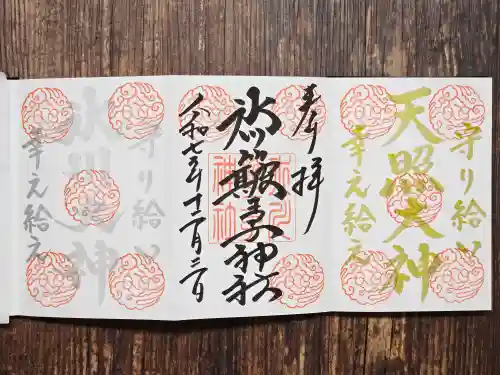 守り給ひ
天照大神
幸え給え
奉拝
神社
令和七年十二月三日
守り給ひ
氷川大神
幸え給え